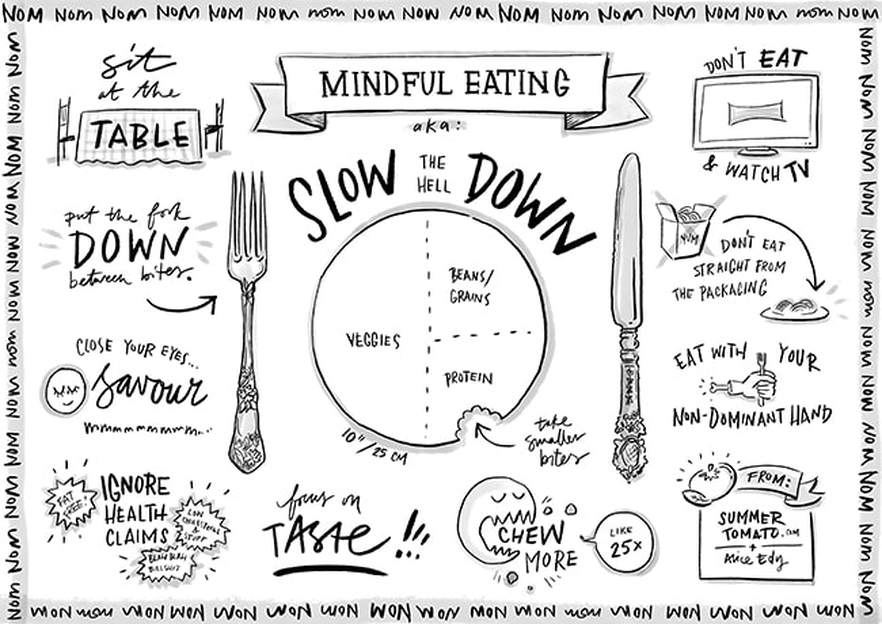 NOM NOM NOM NOM NOM NOM nom NOM NOM NOM NOM NOM NOM NOM NOM NOM nom NOM
sit
at the
TABLE
MINDFUL EATING
aka:
SLOW THE HELL DOWN
DON'T EAT
& WATCH TV
put the fork
DOWN
between bites.
VEGGIES
BEANS/
GRAINS
PROTEIN
10"/25 CM
take
smaller
bites
NOM
DON'T EAT
STRAIGHT FROM
THE PACKAGING
CLOSE YOUR EYES...
savour
mmmmmmmmmm...
EAT WITH YOUR
NON-DOMINANT HAND
FAT
FREE!
IGNORE
HEALTH
CLAIMS
LOW
CHOLESTEROL
&
STUFF
BLAH BLAH
BULLSHIT
focus on
TASTE!!!
CHEW
MORE
LIKE
25x
FROM:
SUMMER
TOMATO.com
+
Alice Edy